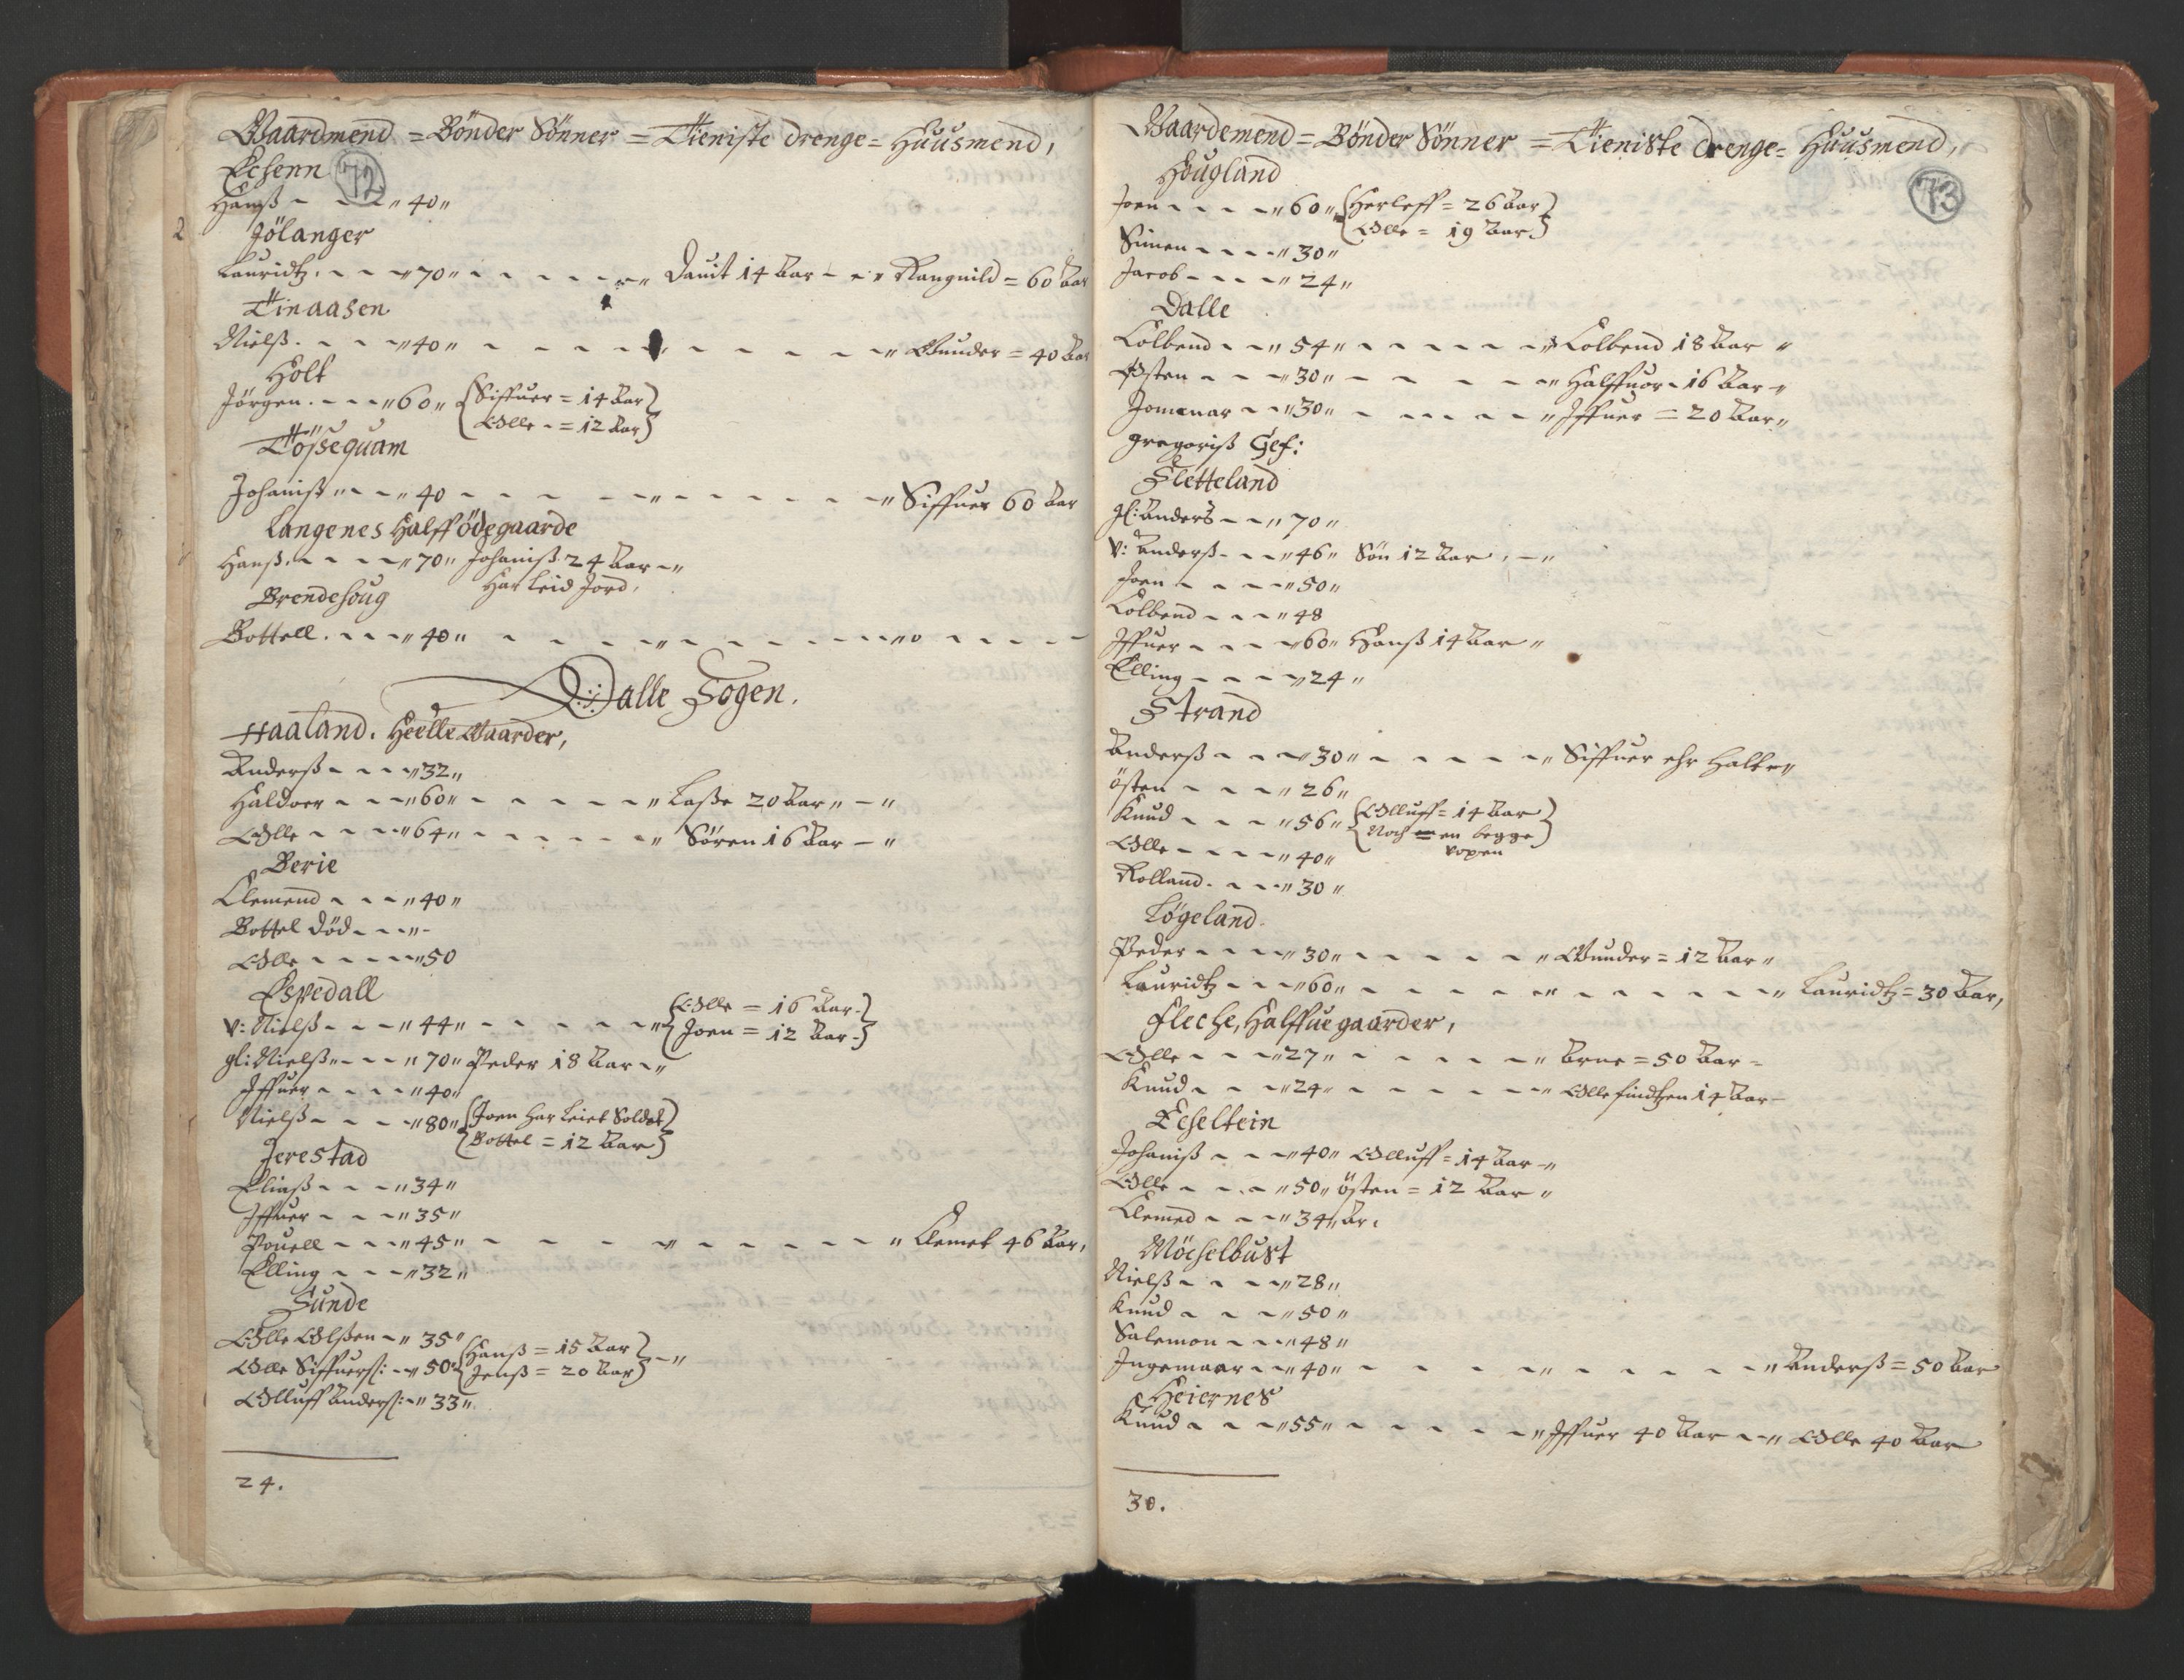 Gaardmend = Bønder Sønner = Tieniste drenge = Huusmend,
Echenn 72
Hanß - - - " 40 "
2
Jølanger
Lauridtz. - - - " 70 " - - - - - " Dauit 14 Aar - - " Rangnild = 60 Aar
Tinaasen
Nielß. - - - " 40 " - - - - - - - - - " Gunder = 40 Aar
Holt
Jørgen. - - - " 60 " { Siffuer = 14 Aar }
{ Olle - = 12 Aar }
Tøssequam
Johaniß " - - " 40 - - - - - " - - - - - " Siffuer 60 Aar
Langenes Halff ödegaarde
Hanß. - - - - " 70 " Johaniß 24 Aar - "
Har leid Jord,
Brendehoug
Bottell. - - - " 40 " - - - - " - - - - - - " o - - - -
Dalle Sogen.
Haaland. Heelle Gaarder,
Anderß - - - " 32 "
Haldoer - - - " 60 " - - - - - - " Laße 20 Aar " - "
Olle - - - " 64 " - - - - - - " Søren 16 Aar - "
Berie
Clemend - - - " 40 "
Bottel død - - - " -
Olle - - - - - " 50
Espedall
v: Nielß - - - " 44 " - - - - - " { Olle = 16 Aar - }
{ Joen = 12 Aar - }
gl: Nielß " - - - " 70 " Peder 18 Aar - "
Iffuer - - - - " 40 "
Nielß - - - - " 80 " { Joen har leiet Soldat }
{ Bottel = 12 Aar }
Jerestad
Eliaß - - - " 34 "
Iffuer - - - " 35 "
Pouell - - - " 45 " - - - - " - - - - - " Clemet 46 Aar,
Elling - - - " 32 "
Sunde
Olle Olßen - " 35 " { Hanß = 15 Aar }
Olle Siffuerß: - " 50 " { Jenß = 20 Aar } - "
Olluff Anderß: - " 33 "
24.
Gaardemend = Bønder Sønner = Tieniste drenge = Huusmend,
Hougland 73
Joen - - - - " 60 " { Herleff = 26 Aar }
{ Olle = 19 Aar }
Simen - - - - " 30 "
Jacob - - - - " 24 "
Dalle
Colbend - - " 54 " - - - - - - " Colbend 18 Aar "
Østen - - - " 30 " - - - - - " Halffuor - 16 Aar - "
Jomenar - - " 30 " - - - - - " Iffuer = 20 Aar "
gregoriß
Sletteland
gl: Anders - - " 70 "
v: Anderß - - - " 46 " Søn 12 Aar, - "
Joen - - - - - " 50 "
Colbend - - - " 48
Iffuer - - - - " 60 " Hanß 14 Aar "
Elling - - - - " 24 "
Strand
Anderß - - - " 30 " - - - - - " Siffuer ehr halt - "
østen - - - - " 26 "
Knud - - - - " 56 " { Olluff = 14 Aar }
{ Noch en begge }
voxen
Olle - - - - " 40 "
Rolland. - - - " 30 "
Løgeland.
Peder - - - - " 30 " - - - - - " Gunder = 12 Aar "
Lauridtz - - - " 60 " - - - - - " - - - - - - " Lauridtz = 30 Aar,
Fleche, Halffue gaarder,
Olle - - - - " 27 " - - - - - - " Arne = 50 Aar -
Knud - - - " 24 " - - - - - - " Olle findtzen 14 Aar -
Echeltein
Johaniß - - - " 40 " Olluff = 14 Aar - "
Olle - - - - " 50 " østen = 12 Aar "
Clemed - - - " 34 " Ar.
Möchelbust
Nielß - - - - " 28 "
Knud - - - " 50 "
Salemon - - - " 48 "
Ingemaar - - " 40 " - - - - - " - - - - - - " Anderß = 50 Aar
Heiernes
Knud - - - - " 55 " - - - - - - " Iffuer 40 Aar - - " Olle 40 Aar
30.